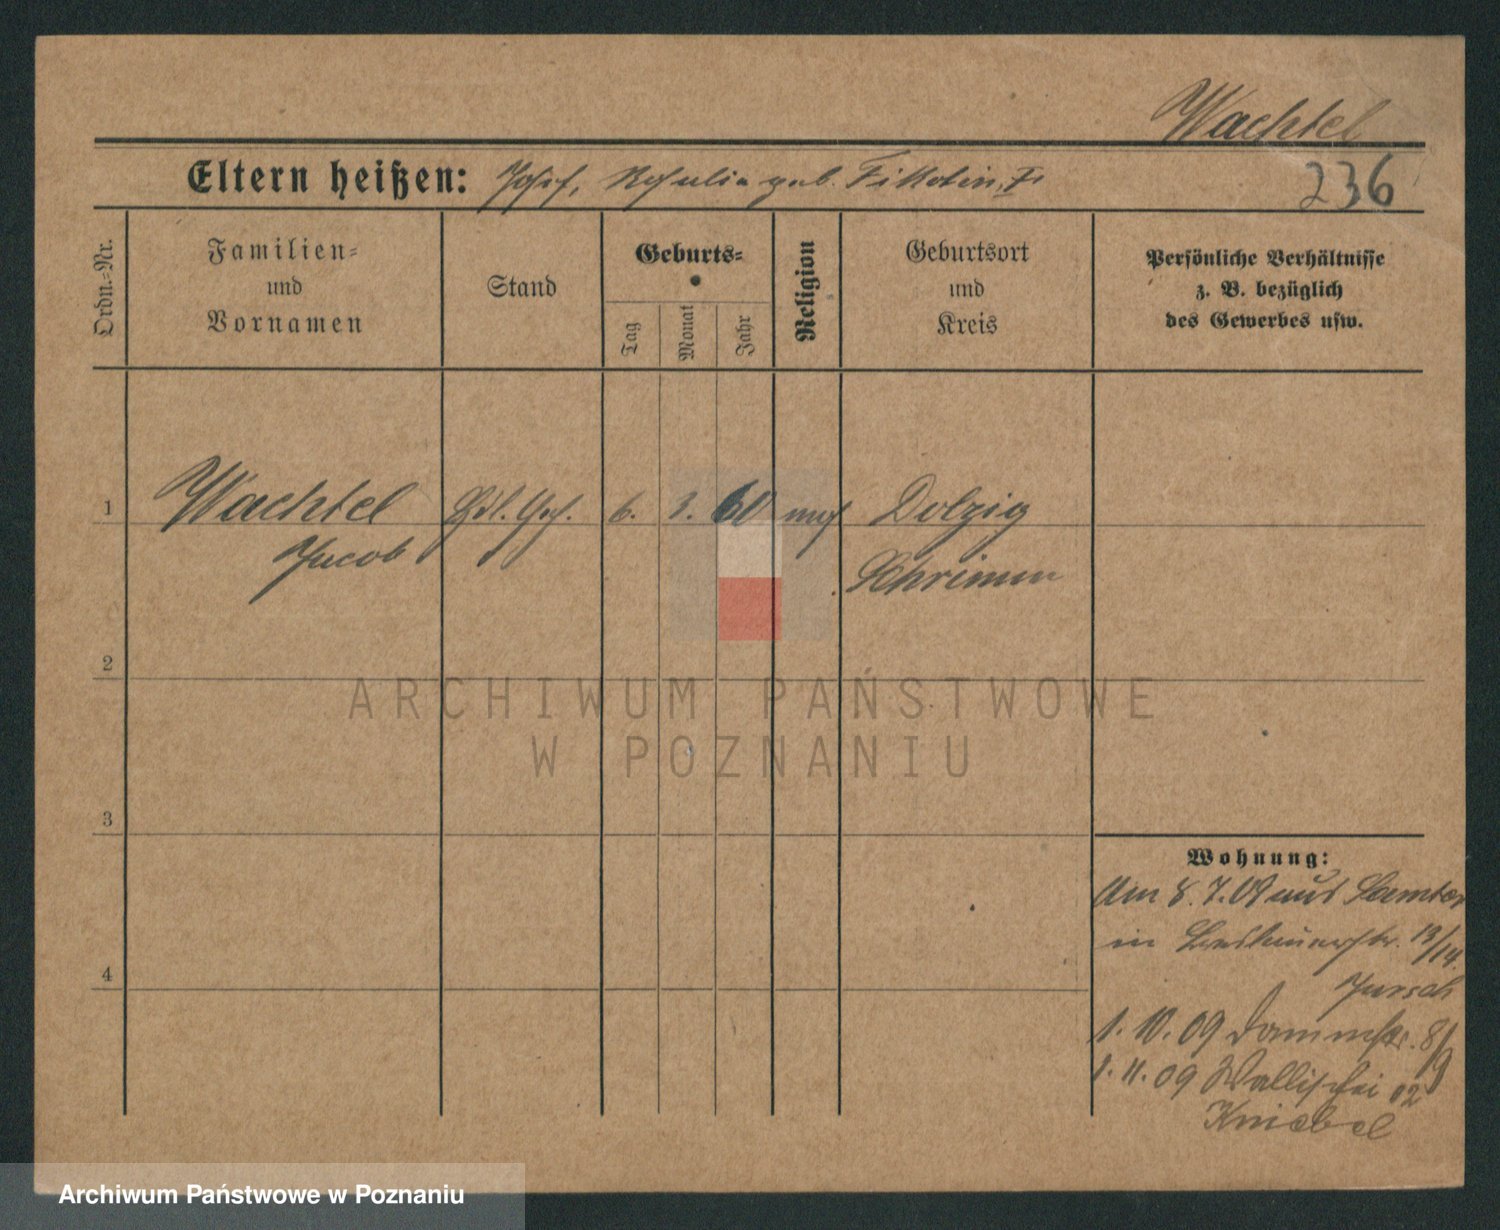 Wachtel
Eltern heißen: Josef, Rosalia geb.
236
Ordn.=Nr.
Familien=
und
Vornamen
Stand
Geburts=
Tag
Monat
Jahr
Religion
Geburtsort
und
Kreis
Persönliche Verhältnisse
z. B. bezüglich
des Gewerbes usw.
1
Wachtel
6. 1. 60 mos
Dolzig
Jacob
Schrimm
2
ARCHIWUM PAŃSTWOWE
W POZNANIU
3
Wohnung:
Am 8.7.09 aus Samter
in 13/14.
Jursch
1. 10. 09 Dammstr. 8/9
1. 11. 09 Wallischei
Kniebel
4
Archiwum Państwowe w Poznaniu